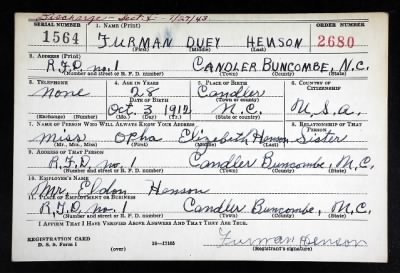 Discharge - Sept. 5 - 1/27/43
SERIAL NUMBER 1. NAME (Print) ORDER NUMBER
1564 FURMAN DUEY HENSON 2680
(First) (Middle) (Last)
2. ADDRESS (Print)
R.F.D. no. 1 CANDLER BUNCOMBE, N.C.
(Number and street or R. F. D. number) (Town) (County) (State)
3. TELEPHONE 4. AGE IN YEARS 5. PLACE OF BIRTH 6. COUNTRY OF CITIZENSHIP
none 28 Candler
DATE OF BIRTH (Town or county)
Oct. 3, 1912 N.C. U.S.A.
(Exchange) (No.) (Mo.) (Day) (Yr.) (State or country)
7. NAME OF PERSON WHO WILL ALWAYS KNOW YOUR ADDRESS 8. RELATIONSHIP OF THAT PERSON
Miss Opha Elizabeth Henson Sister
(Mr., Mrs., Miss) (First) (Middle) (Last)
9. ADDRESS OF THAT PERSON
R.F.D. no. 1 Candler Buncombe, N.C.
(Number and street or R. F. D. number) (Town) (County) (State)
10. EMPLOYER'S NAME
Mr. Eldon Henson
11. PLACE OF EMPLOYMENT OR BUSINESS
R.F.D. no. 1 Candler Buncombe, N.C.
(Number and street or R. F. D. number) (Town) (County) (State)
I AFFIRM THAT I HAVE VERIFIED ABOVE ANSWERS AND THAT THEY ARE TRUE.
Furman Henson
REGISTRATION CARD
D. S. S. Form 1 (over) 16-17105 (Registrant's signature)